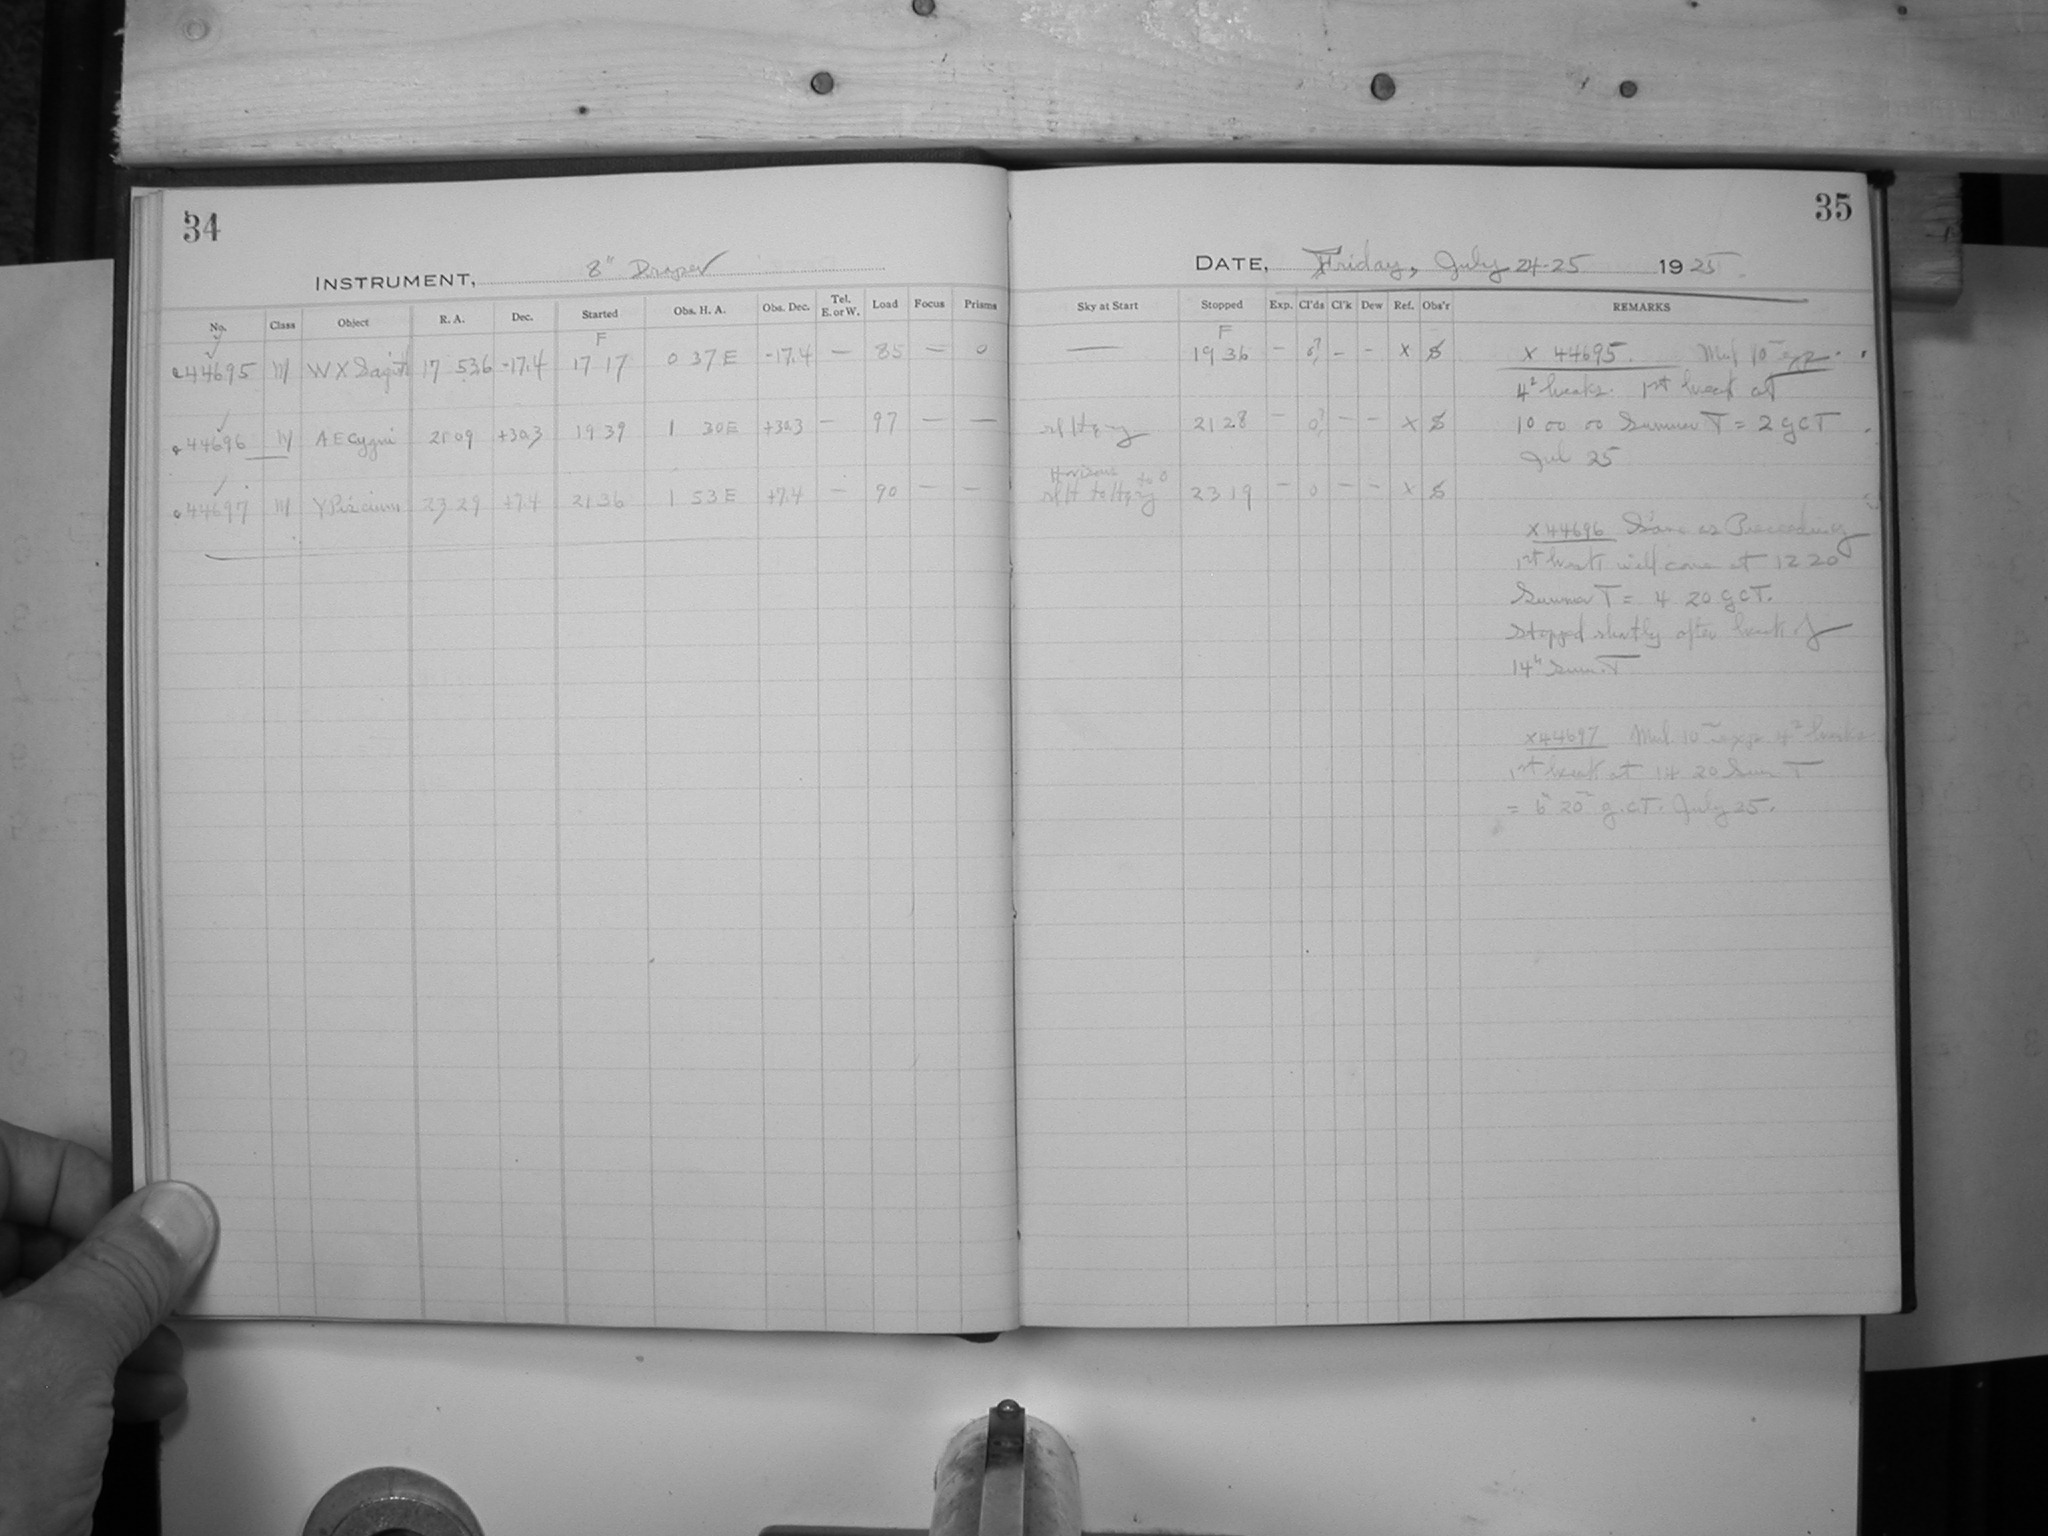 34
INSTRUMENT, 8" Draper
No. Class Object R. A. Dec. Started Obs. H. A. Obs. Dec. Tel. E. or W. Load Focus Prisms
F
44695 M WX Sagitt 17 53.6 -17.4 17 17 0 37 E -17.4 — 85 — 0
44696 M AE Cygni 21 09 +30.3 19 39 1 30 E +30.3 — 97 — —
44697 M Y Piscium 23 29 +7.4 21 36 1 53 E +7.4 — 90 — —
35
DATE, Friday, July 24-25 1925.
Sky at Start Stopped Exp. Cl'ds Cl'k Dew Ref. Obs'r REMARKS
F
— 19 36 — 0? — — x
21 28 — 0? — — x
Horizon to 0
23 19 — 0 — — x
X 44695. Mul 10m exp.
4s breaks. 1st break at
10 00 00 Summer T = 2 GCT
Jul 25
X 44696 Same as Preceeding
1st break will come at 12 20
Summer T = 4 20 GCT.
Stopped shortly after break of
14h Sum. T
X 44697 Mul. 10m exp 4s breaks
1st break at 14 20 Sum T
= 6h 20m G.C.T. July 25.